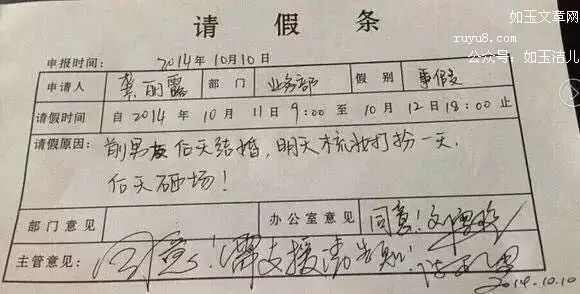 如玉文章网
ruyu8.com
公众号：如玉洁儿
请假条
申报时间： 2014年10月10日
申请人 龚丽露 部门 业务部 假别 事假
请假时间 自 2014年10月11日9:00至10月12日18:00止
请假原因： 前男友后天结婚,明天梳妆打扮一天,
后天砸场!
部门意见 办公室意见 同意!
主管意见： 同意!需支援请告知!
2014.10.10